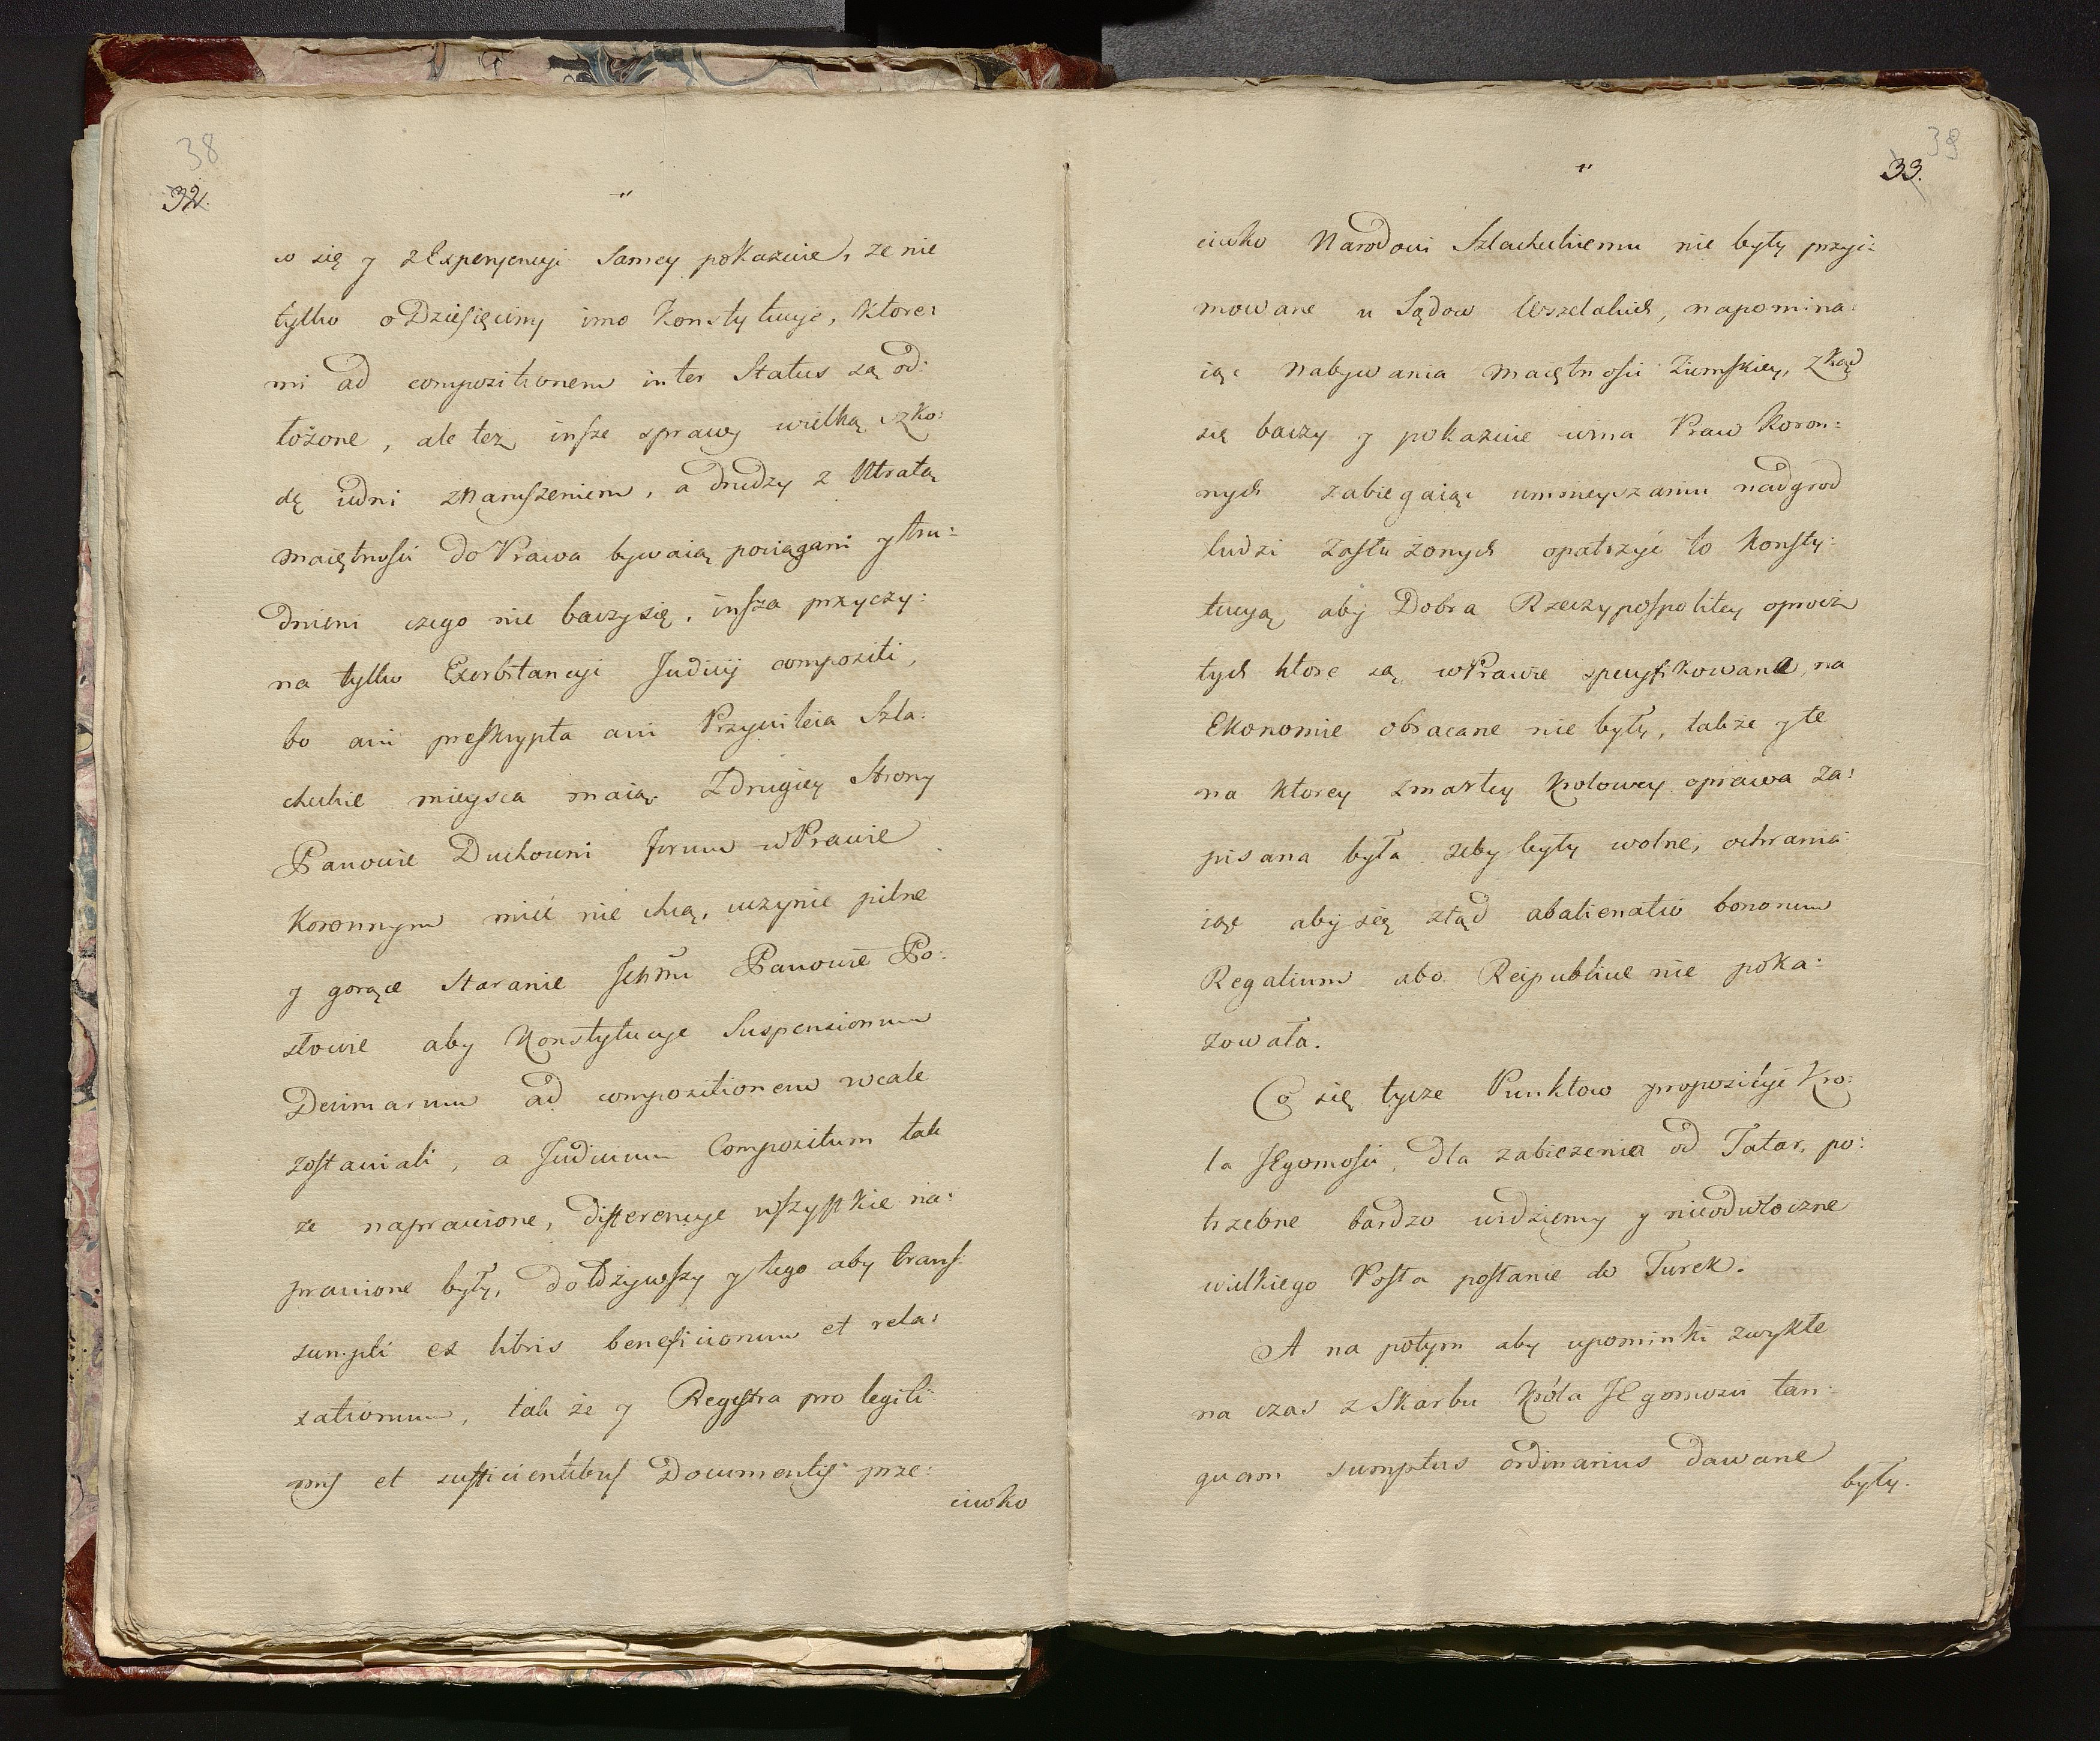 38
32.
co się y z Experyencyi samey pokazuie, że nie
tylko o Dziesięciny imo Konstytucye, ktore:
mi ad compositionem inter Status są od:
łożone, ale też insze sprawy wielką szko:
dę iedni z naruszeniem, a drudzy z Utratą
maiętności do Prawa bywaią pociągani y tru:
dnieni czego nie baczy się, insza przyczy:
na tylko Exorbitancyi Judicij compositi,
bo ani preskrypta ani Przywileia Szla:
checkie mieysca maią. Z drugiey Strony
Panowie Duchowni forum w Prawie
Koronnym mieć nie chcą, uczynie pilne
y gorące staranie Ichmć Panowie Po:
słowie aby Konstytucye Suspensionum
Decimarum ad compositionem wcale
zostawiali, a Judicium Compositum tak
ze naprawione, differencye wszystkie na:
prawione były, dołożywszy y tego aby trans:
sumpti ex libris beneficiorum et rela:
xationum, tak że y Regestra pro legiti:
mis et sufficientibus Documentis prze:
ciwko
39
33.
ciwko Narodowi Szlacheckiemu nie były przyi:
mowane u Sądow Wszelakich, napomina:
iąc nabywania maiętności Ziemskiey, zkąd
się baczy y pokazuie wina Praw Koron:
nych zabiegaiąc umnieyszaniu nadgrod
ludzi zasłużonych opatrzyć to Konsty:
tucyą, aby Dobra Rzeczypospolitey oprocz
tych ktore są w Prawie specyfikowane, na
Ekonomie obracane nie były, także y te
na ktorey zmarłey Krolowey oprawa za:
pisana była żeby były wolne, ochrania:
iąc aby się ztąd abalienatio bonorum
Regalium abo Reipublice nie poka:
zowała.
Co się tycze Punktow propozicyi Kro:
la JEgomości, dla zabieżenia od Tatar, po:
trzebne bardzo widziemy y nieodwłoczne
wielkiego Posła posłanie do Turek.
A na potym aby upominki zwykłe
na czas z Skarbu Króla JEgomosci tan:
quam sumptus ordinarius dawane
były.